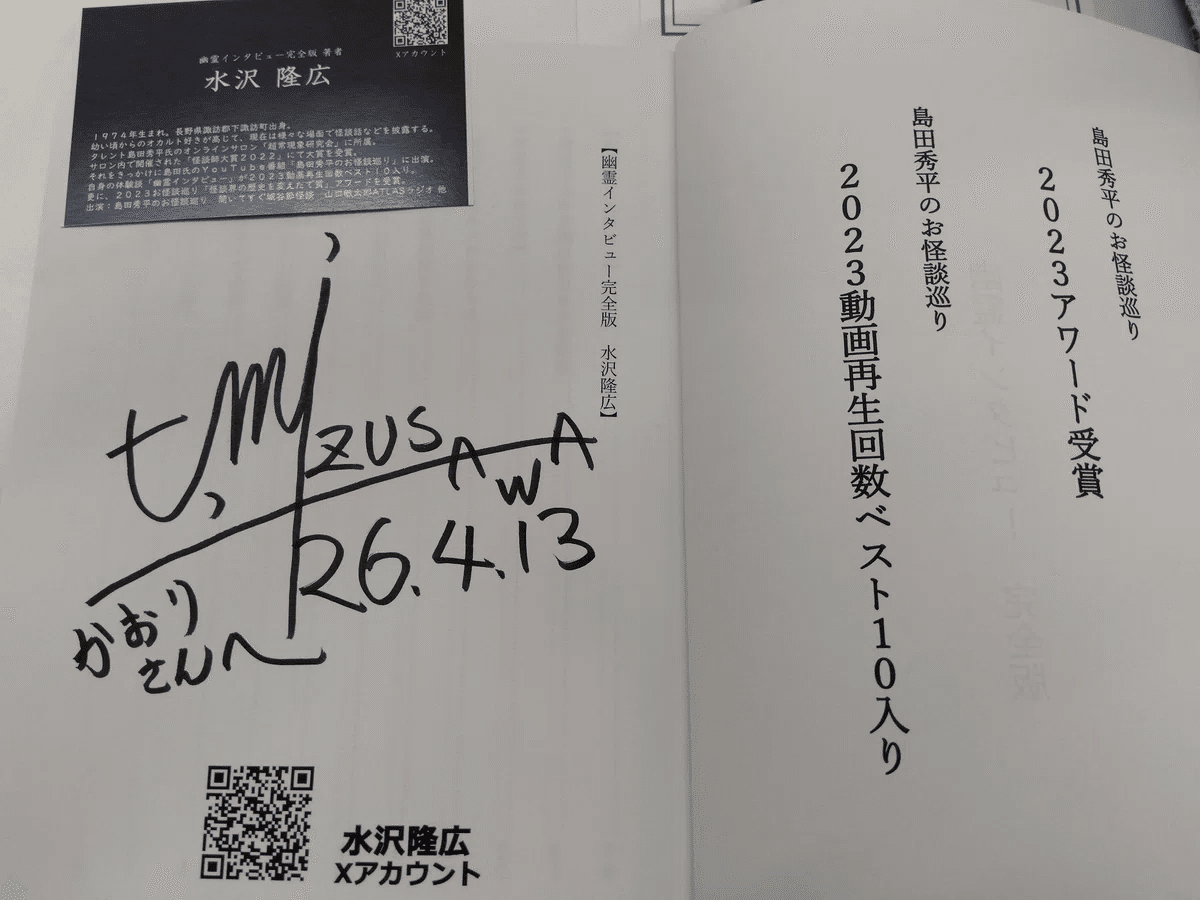 Xアカウント
幽霊インタビュー完全版 著者
水沢 隆広
1974年生まれ。長野県諏訪郡下諏訪町出身。
幼い頃からのオカルト好きが高じて、現在は様々な場面で怪談話などを披露する。
タレント島田秀平氏のオンラインサロン「超常現象研究会」に所属。
サロン内で開催された「怪談師大賞2022」にて大賞を受賞。
それをきっかけに島田氏のYouTube番組「島田秀平のお怪談巡り」に出演。
自身の体験談「幽霊インタビュー」が2023動画再生回数ベスト10入り。
更に、2023お怪談巡り「怪談界の歴史を変えたで賞」アワードを受賞。
出演:島田秀平のお怪談巡り 聞いてすぐ
怪談 山口敏太郎ATLASラジオ 他
【幽霊インタビュー完全版 水沢隆広】
t.mizusawa
26.4.13
かおり
さんへ
水沢隆広
Xアカウント
島田秀平のお怪談巡り
2023アワード受賞
島田秀平のお怪談巡り
2023動画再生回数ベスト10入り